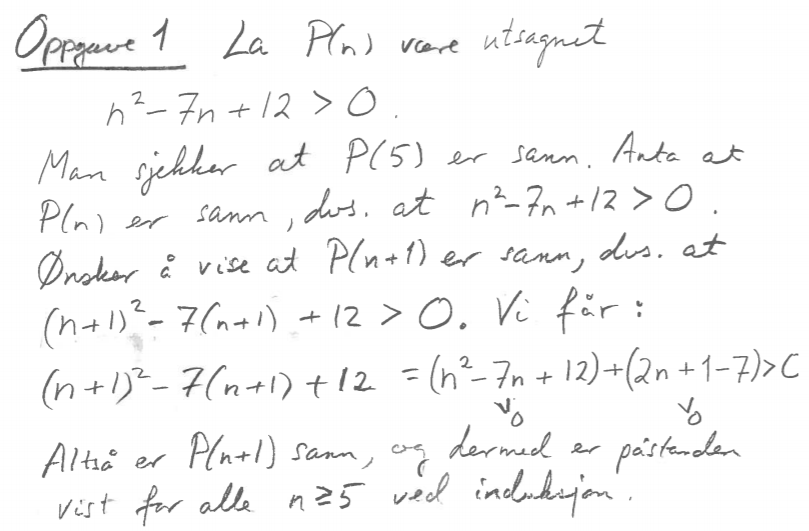 Oppgave 1 La P(n) være utsagnet
n² - 7n + 12 > 0.
Man sjekker at P(5) er sann. Anta at
P(n) er sann, dvs. at n² - 7n + 12 > 0.
Ønsker å vise at P(n+1) er sann, dvs. at
(n+1)² - 7(n+1) + 12 > 0. Vi får:
(n+1)² - 7(n+1) + 12 = (n² - 7n + 12) + (2n + 1 - 7) > 0
v0 v0
Altså er P(n+1) sann, og dermed er påstanden
vist for alle n ≥ 5 ved induksjon.